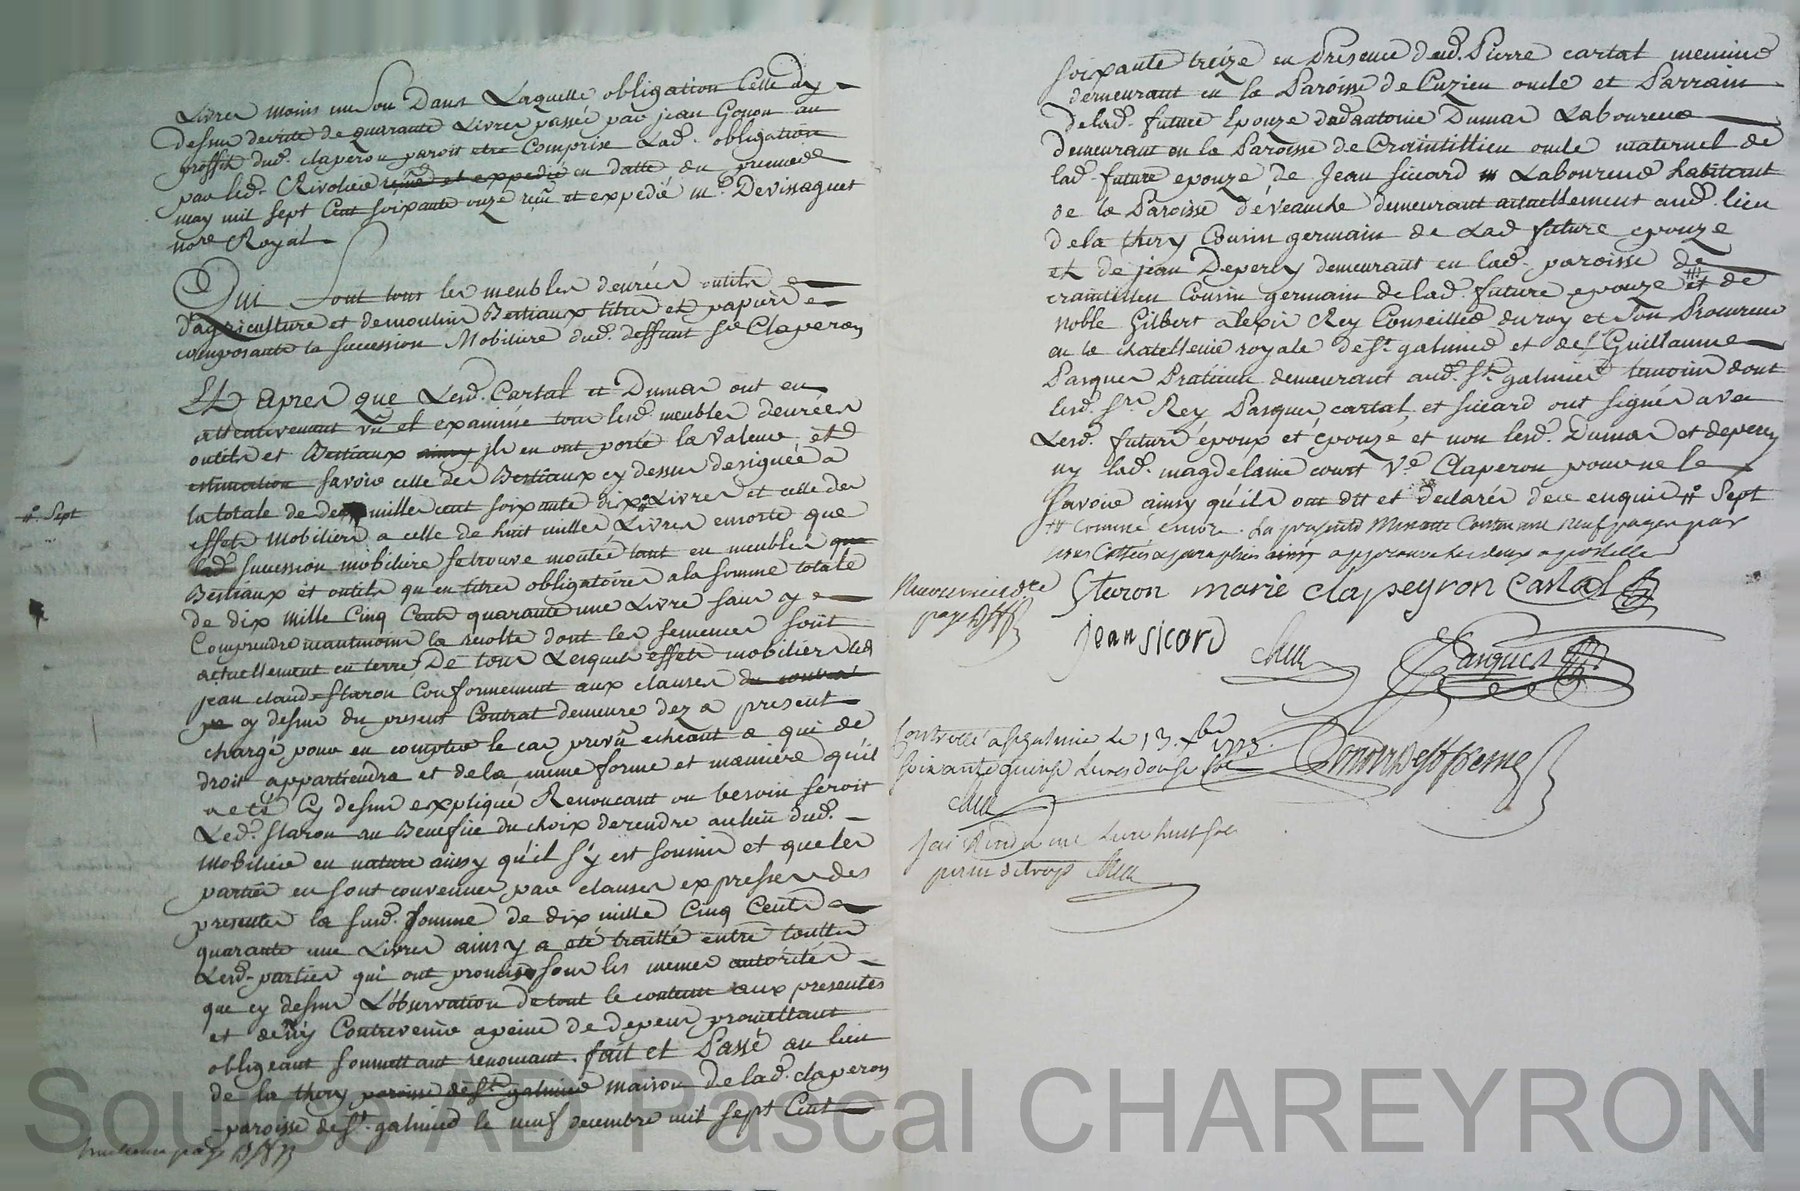 Livres moins un sou Dans Laquelle obligation Celle cy
dessus decrite de quarante Livres passée par jean Gonon au
proffit dud. claperon paroit etre Comprise Lad. obligation
par led. Rivoliere reçüe et expedié en datte du premier
may mil sept Cent soixante onze reçu et expedié m.e Devissaguet
no.re Royal
Qui sont tous les meubles denrées outils
d'agriculture et de moulins Bestiaux titres et papiers
composants la succession Mobiliere dud. deffunt s.r Claperon
Et apres que Lesd. Cartal et Dumas ont eu
attentivement vû et examiné tous lesd. meubles denrées
outils et Bestiaux ainsy ils en ont porté la valeur et
estimation savoir celle des Bestiaux cy dessus designée a
la totale de deux mille cent soixante dix # Livres et celle des
#. sept
effets mobiliers a celle de huit milles Livres ensorte que
lad. succession mobiliere se trouve montée tant en meubles que
Bestiaux et outils qu'en titres obligatoires a la somme totale
de dix mille Cinq Cents quarante une Livre sans y
Comprendre neantmoins la recolte dont les semences sont
actuellement en terre, De tous Lesquels effets mobiliers led.
jean claude staron conformement aux clauses du contrat
cy dessus du present Contrat demeure dez a present
chargé pour en compter le cas prevû echeant a qui de
droit appartiendra et de la meme forme et maniere qu'il
a eté Cy dessus expliqué Renonçant ou besoin seroit
Led. staron au Benefice du choix de rendre au lieu dud.
mobilier en nature ainsy qu'il s'y est soumis et que les
parties en sont convenues par clauses expresses des
presentes la susd. somme de dix mille Cinq Cents
quarante une Livres ainsy a eté traitté entre touttes
Lesd. parties qui ont promis sous les memes autorités
que cy dessus L'observation de tout le contenu aux presentes
et de n'y Contrevenir a peine de depens promettant
obligeant soumettant renonçant. fait et Passé au lieu
de la thory paroisse de s.t galmier maison de lad. claperon
paroisse de s.t galmier le neuf decembre mil sept Cent
soixante treize en Presence dud. Pierre cartal
demeurant en la Paroisse de Cuzieu oncle et Parrain
de lad. future Epouze dud antoine Dumas Laboureur
demeurant en la Paroisse de Craintillieu oncle maternel de
lad. future epouze, de Jean sicard Laboureur habitant
de la Paroisse de veauche demeurant actuellement aud. lieu
de la thory Cousin germain de Lad future epouze
et de jean Depercy demeurant en lad. paroisse de
craintillieu Cousin germain de lad. future epouze et de
noble Gilbert alexis Rey Conseiller du roy et son Procureur
en la chatellenie royale de s.t galmier et de s.r Guillaume
Pasques Praticien demeurant aud. s.t galmier temoins dont
lesd. s.rs Rey Pasques cartal, et sicard ont signés avec
Lesd. futurs époux et épouze et non lesd. Dumas et depercy
ny lad. magdelaine court V.e Claperon pour ne le
savoir ainsy qu'ils ont dit et declarés de ce enquis #. sept
La presente Minutte Contenant neuf pages par
nous Cottées et paraphées ainsy approuvé les deux apostilles
Staron marie clapeyron Cartal
jean sicard
Pasques
Controllé a s.t galmier Le 13. xbre 1773.
soixante quinze Livres douze sols
jai Rendu une Livre huit sols
perçus de trop